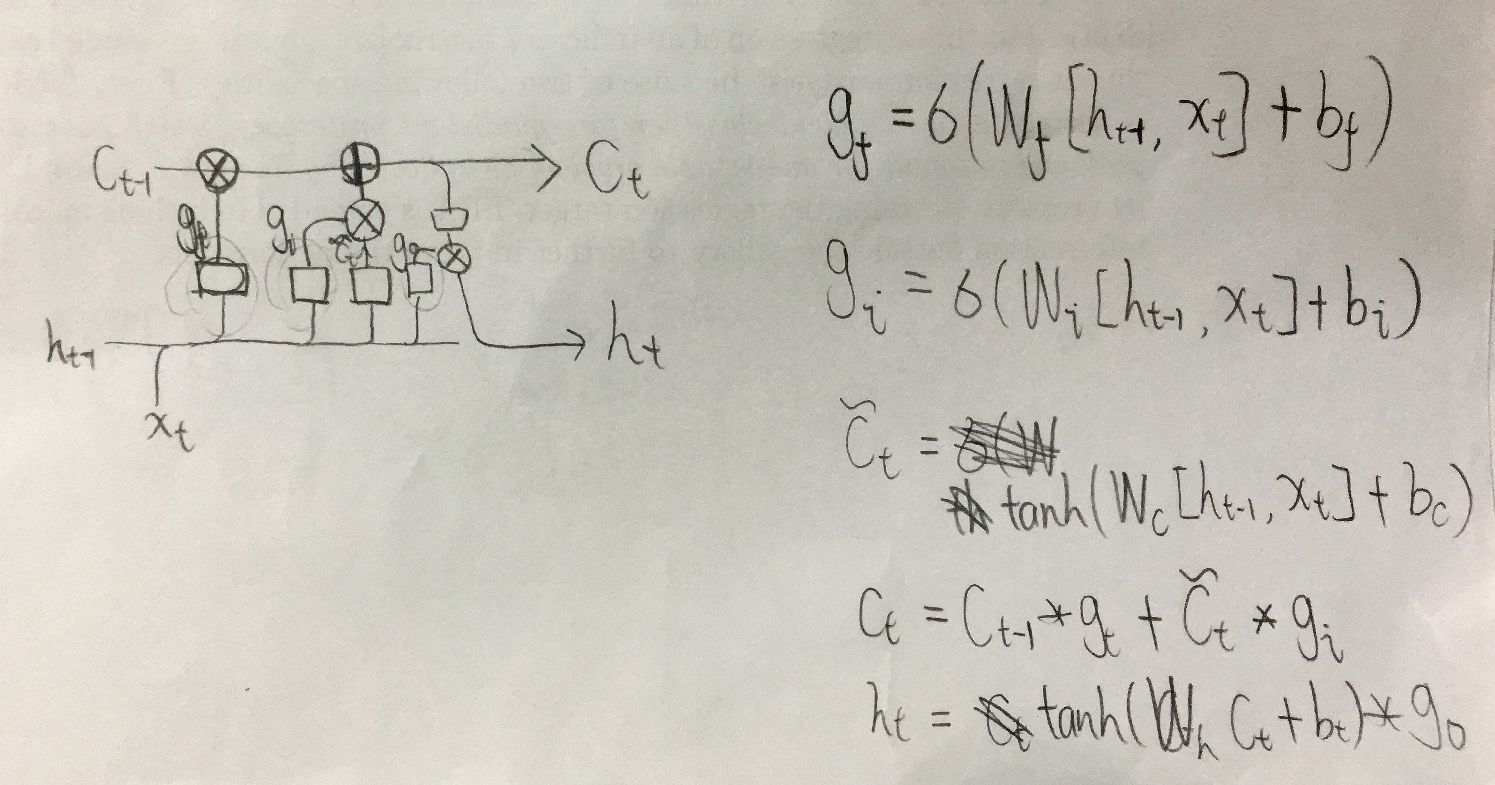 C_{t-1}
C_t
g_f
g_i
C̃_t
g_o
h_{t-1}
h_t
x_t
g_f = σ(W_f [h_{t-1}, x_t] + b_f)
g_i = σ(W_i [h_{t-1}, x_t] + b_i)
C̃_t =
tanh(W_c [h_{t-1}, x_t] + b_c)
C_t = C_{t-1} * g_t + C̃_t * g_i
h_t = tanh(W_h C_t + b_t) * g_o